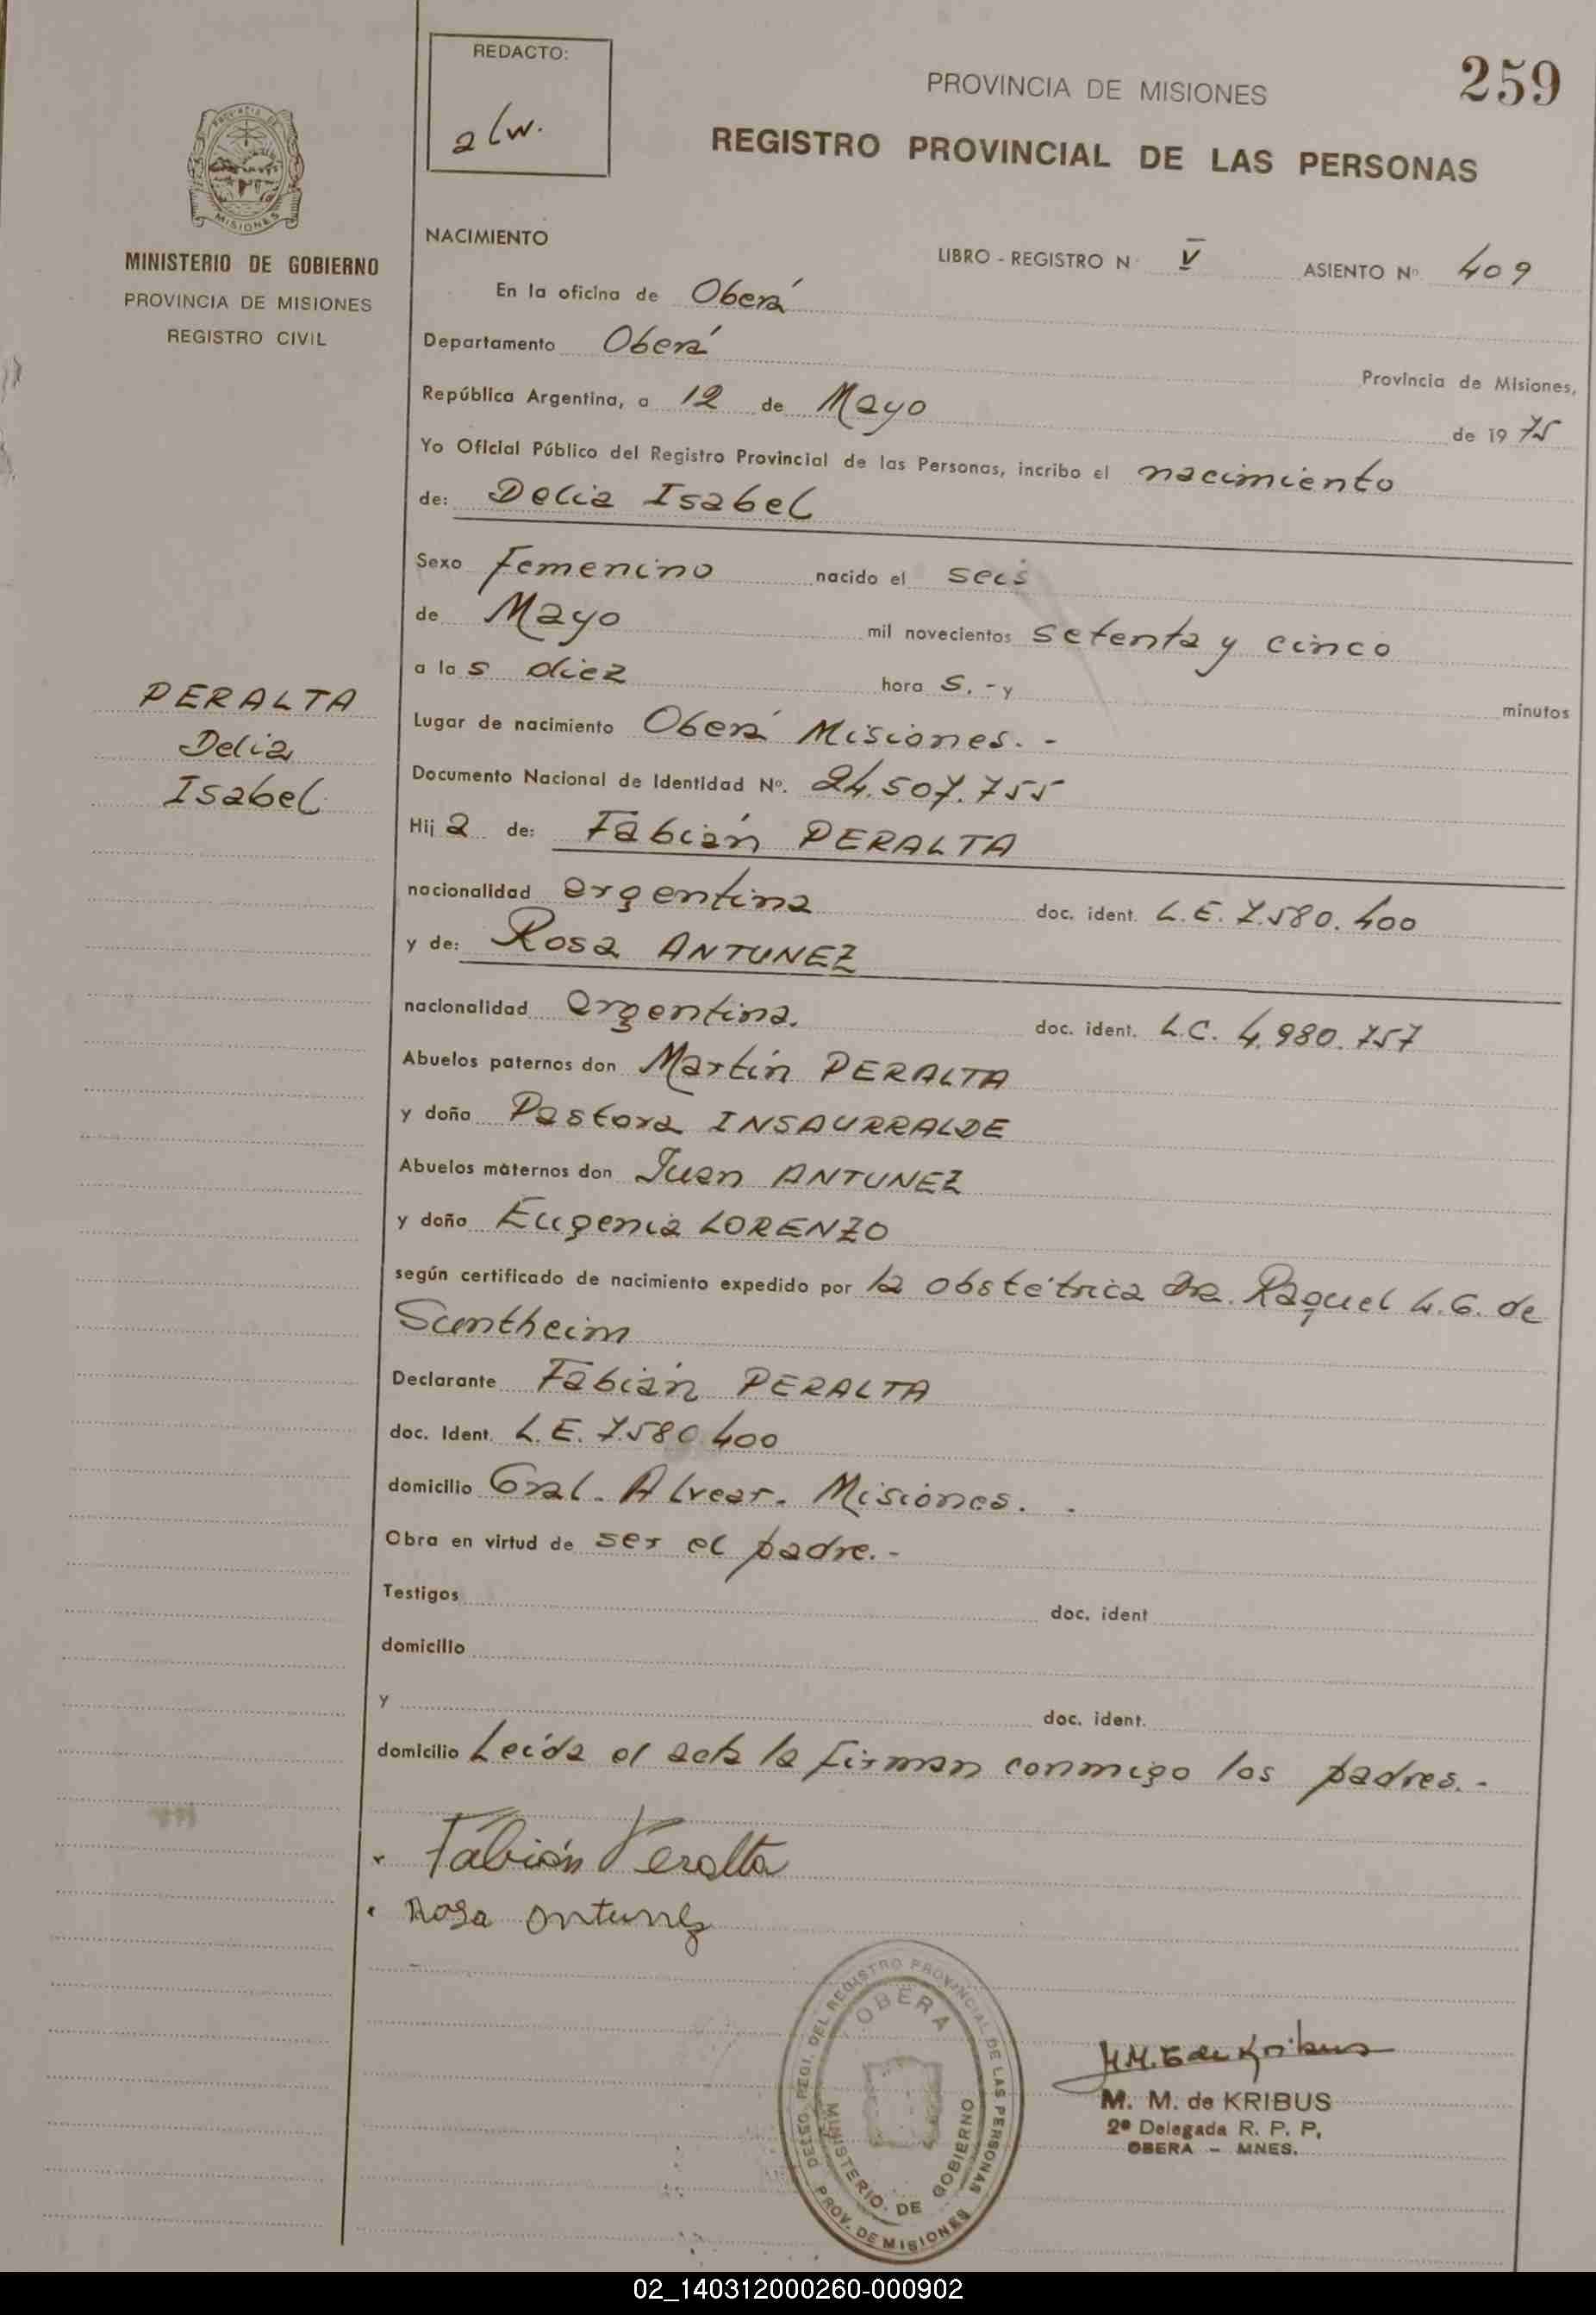 REDACTO:
alw.
PROVINCIA DE MISIONES
259
REGISTRO PROVINCIAL DE LAS PERSONAS
MISIONES
MINISTERIO DE GOBIERNO
PROVINCIA DE MISIONES
REGISTRO CIVIL
NACIMIENTO
LIBRO - REGISTRO N V ASIENTO Nº 409
En la oficina de Oberá
Departamento Oberá
Provincia de Misiones,
República Argentina, a 12 de Mayo de 1975
Yo Oficial Público del Registro Provincial de las Personas, incribo el nacimiento
de: Delia Isabel
Sexo Femenino nacido el seis
de Mayo mil novecientos setenta y cinco
a las diez hora s.- y minutos
PERALTA
Delia
Isabel
Lugar de nacimiento Oberá Misiones.-
Documento Nacional de Identidad Nº. 24.507.755
Hija de: Fabián PERALTA
nacionalidad argentina doc. ident. L.E. 7.580.400
y de: Rosa ANTUNEZ
nacionalidad argentina. doc. ident. L.C. 4.980.757
Abuelos paternos don Martín PERALTA
y doña Pastora INSAURRALDE
Abuelos maternos don Juan ANTUNEZ
y doña Eugenia LORENZO
según certificado de nacimiento expedido por la obstétrica Dra. Raquel G. de
Suntheim
Declarante Fabián PERALTA
doc. Ident. L.E. 7.580.400
domicilio Gral. Alvear. Misiones. -
Obra en virtud de ser el padre.-
Testigos doc. ident
domicilio
y doc. ident.
domicilio Leída el acta la firman conmigo los padres.-
Fabián Peralta
Rosa Antunez
DELEG. REGI. DEL REGISTRO PROVINCIAL DE LAS PERSONAS
OBERA
MINISTERIO DE GOBIERNO
PROV. DE MISIONES
M. M. de Kribus
M. M. de KRIBUS
2ª Delegada R. P. P.
OBERA - MNES.
02_140312000260-000902